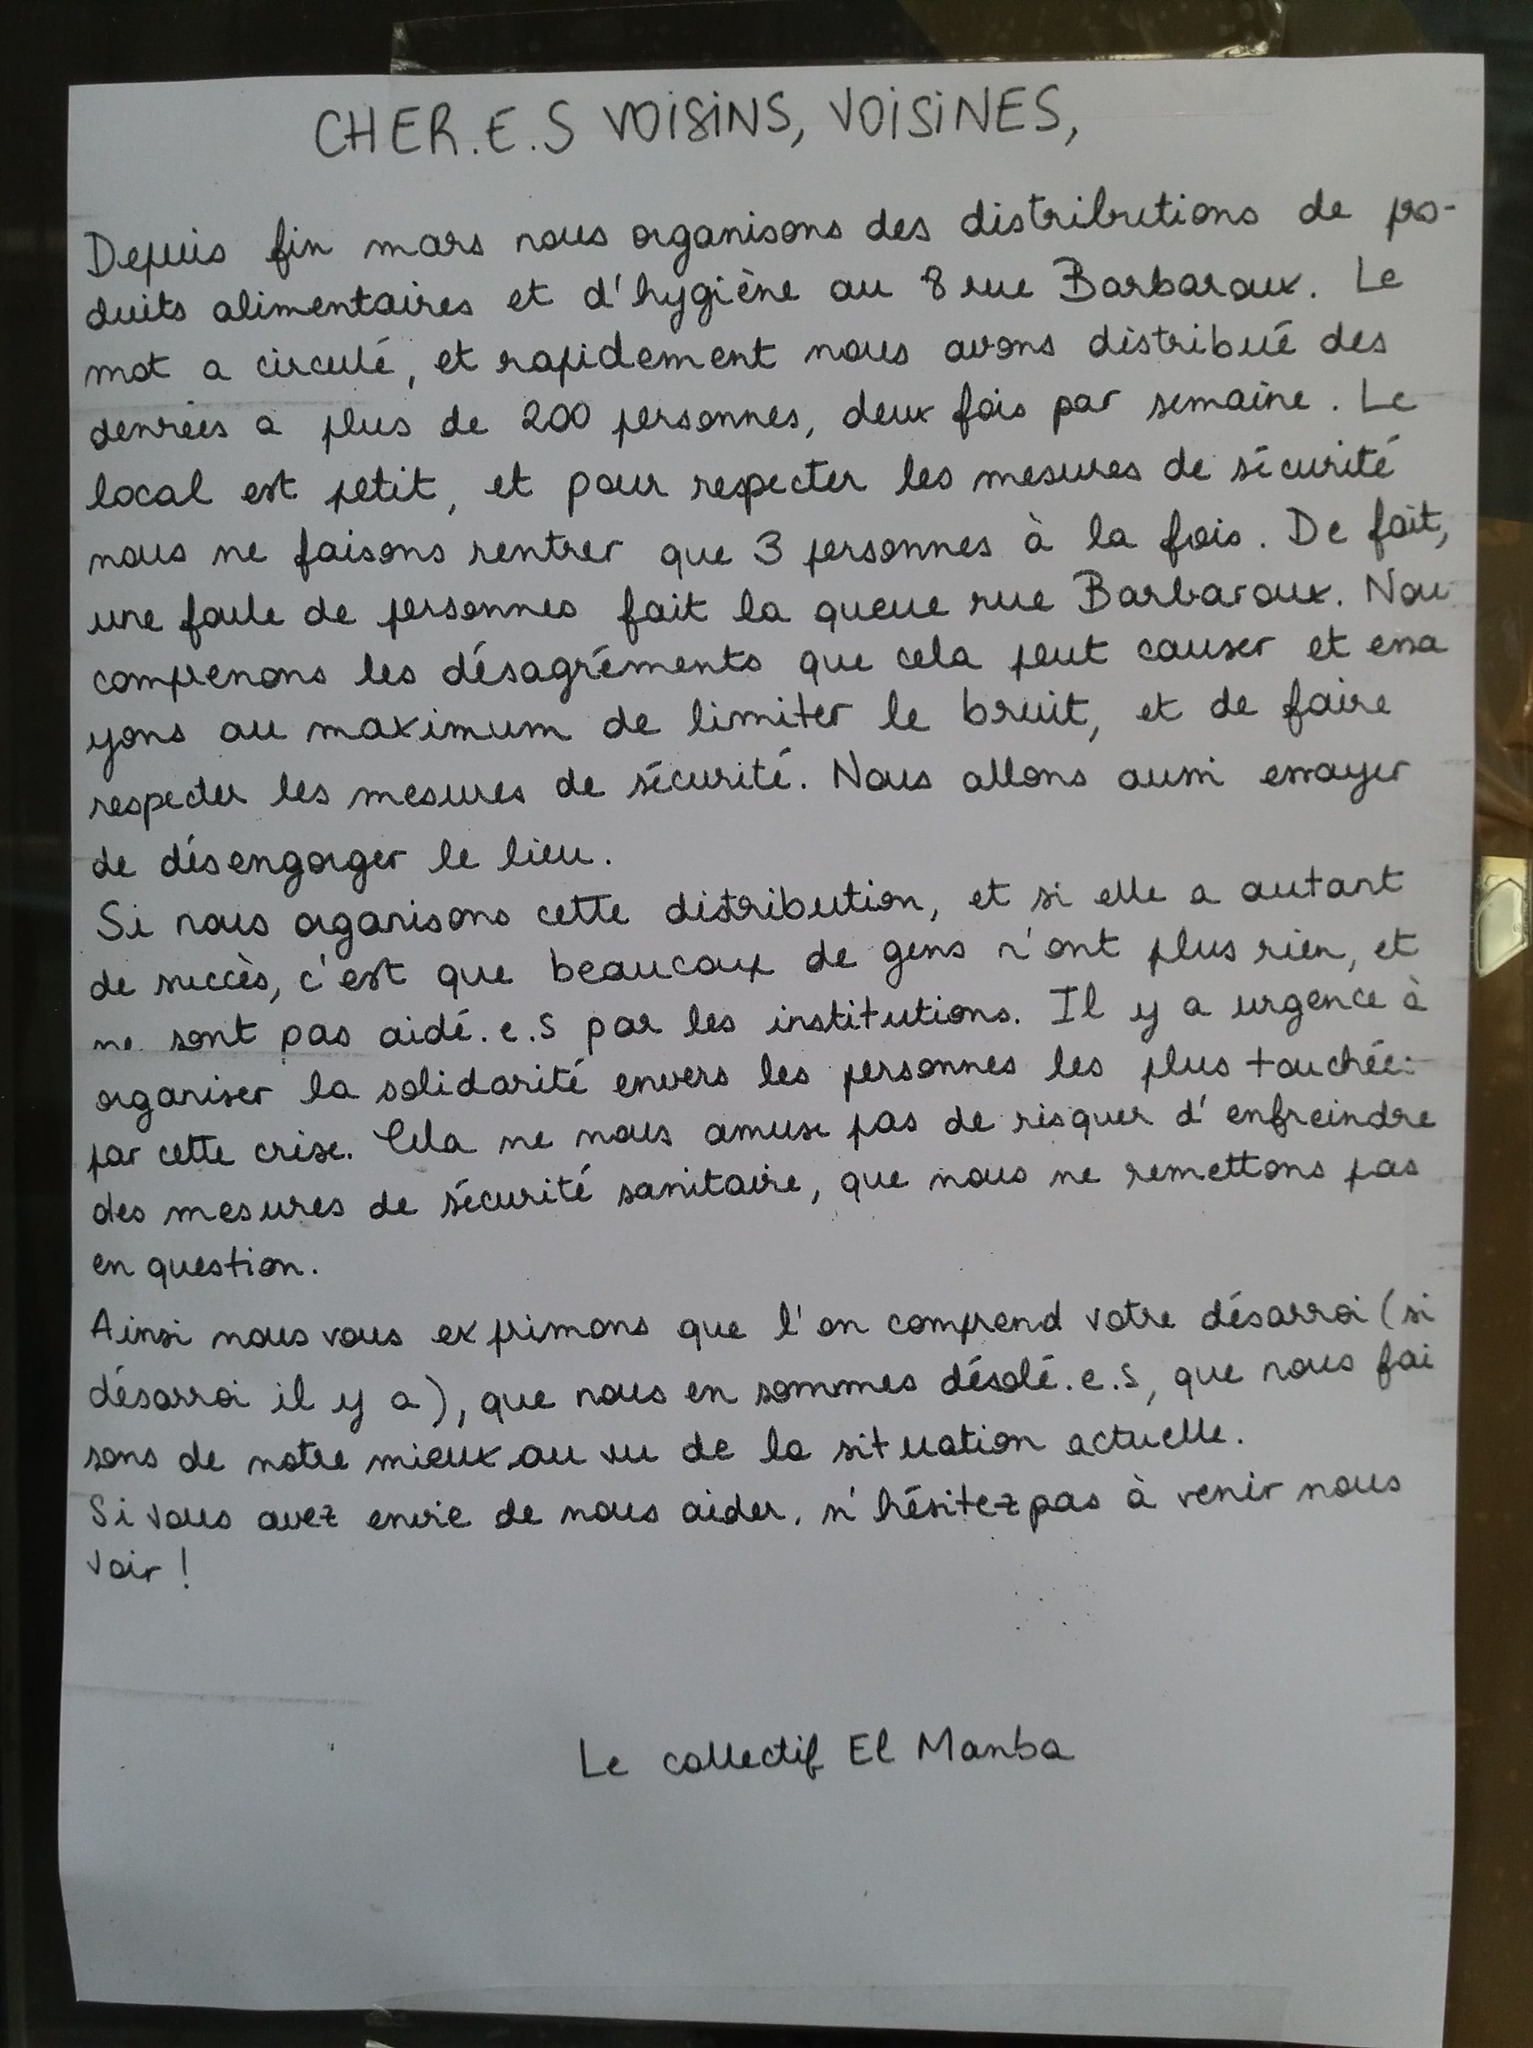 CHER.E.S VOISINS, VOISINES,
Depuis fin mars nous organisons des distributions de pro-
duits alimentaires et d'hygiène au 8 rue Barbaroux. Le
mot a circulé, et rapidement nous avons distribué des
denrées a plus de 200 personnes, deux fois par semaine. Le
local est petit, et pour respecter les mesures de sécurité
nous ne faisons rentrer que 3 personnes à la fois. De fait,
une foule de personnes fait la queue rue Barbaroux. Nou
comprenons les désagréments que cela peut causer et essa
yons au maximum de limiter le bruit, et de faire
respecter les mesures de sécurité. Nous allons aussi essayer
de désengorger le lieu.
Si nous organisons cette distribution, et si elle a autant
de succès, c'est que beaucoup de gens n'ont plus rien, et
ne sont pas aidé.e.s par les institutions. Il y a urgence à
organiser la solidarité envers les personnes les plus touchée
par cette crise. Cela ne nous amuse pas de risquer d'enfreindre
des mesures de sécurité sanitaire, que nous ne remettons pas
en question.
Ainsi nous vous exprimons que l'on comprend votre désarroi (si
désarroi il y a), que nous en sommes désolé.e.s, que nous fai
sons de notre mieux au vu de la situation actuelle.
Si vous avez envie de nous aider, n'hésitez pas à venir nous
voir !
Le collectif El Manba